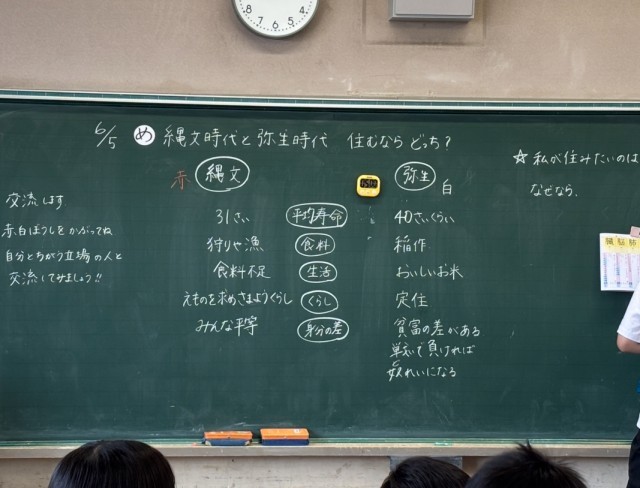 8 7 6 5 4
6/5 め 縄文時代と弥生時代 住むなら どっち?
赤 縄文
弥生 白
31さい 平均寿命 40さいくらい
狩りや漁 食料 稲作
食料不足 生活 おいしいお米
えものを求めさまようくらし くらし 定住
みんな平等 身分の差 貧富の差がある
戦いで負ければ
奴れいになる
交流します
赤白ぼうしをかぶってね
自分とちがう立場の人と
交流してみましょう!!
☆ 私が住みたいのは
なぜなら、
臓 脳 肺